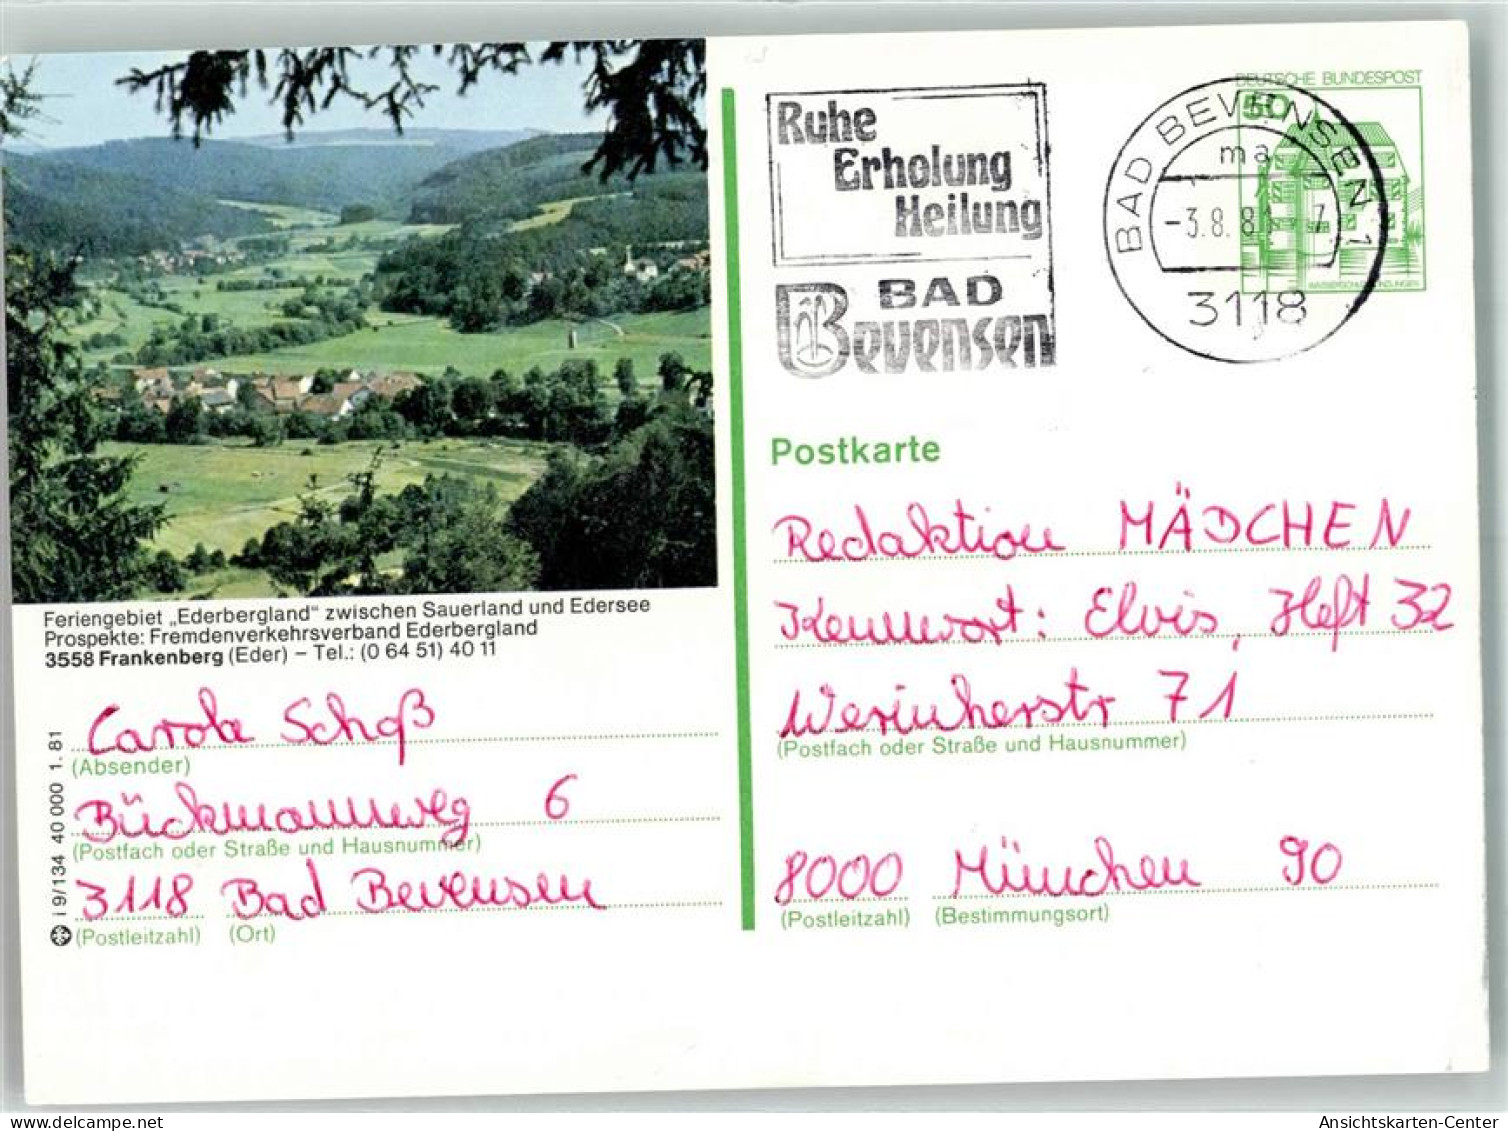 Ruhe
Erholung
Heilung
BAD
Bevensen
BAD BEVENSEN 1
ma
-3.8.81-7
3118
DEUTSCHE BUNDESPOST
50
WASSERSCHLOSS INZLINGEN
Feriengebiet „Ederbergland“ zwischen Sauerland und Edersee
Prospekte: Fremdenverkehrsverband Ederbergland
3558 Frankenberg (Eder) – Tel.: (0 64 51) 40 11
Carola Schoß
(Absender)
Bückmannweg 6
(Postfach oder Straße und Hausnummer)
3118 Bad Bevensen
(Postleitzahl) (Ort)
i 9/134 40 000 1.81
Postkarte
Redaktion MÄDCHEN
Kennwort: Elvis, Heft 32
Werinherstr 71
(Postfach oder Straße und Hausnummer)
8000 München 90
(Postleitzahl) (Bestimmungsort)
Ansichtskarten-Center